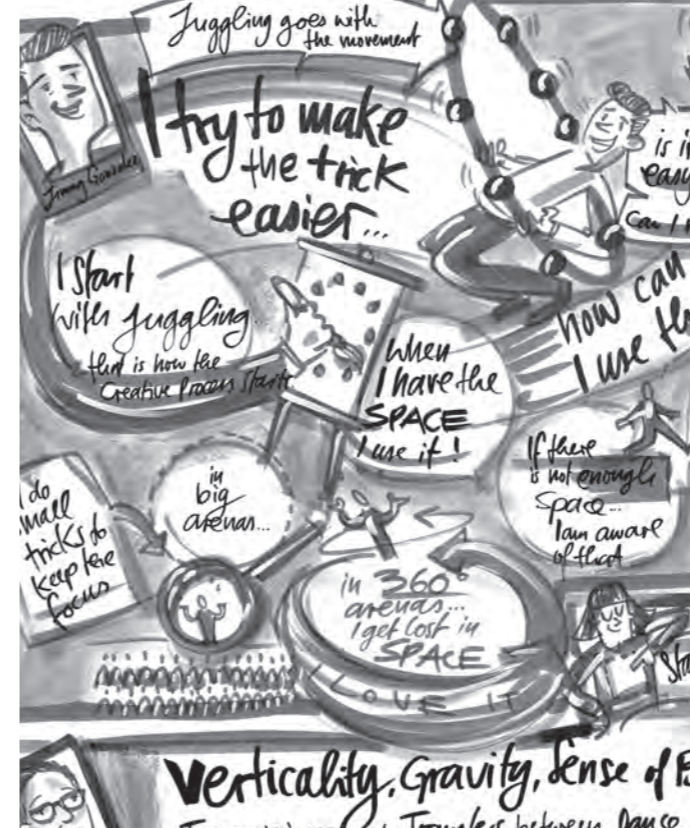 Juggling goes with
the movement
Jimmy Gonzalez
I try to make
the trick
easier...
is i
easy
Can I
I start
with juggling
that is how the
Creative Process starts
how can
I use th
When
I have the
SPACE
I use it!
If there
is not enough
space...
I am aware
of that
in
big
arenas...
I do
small
tricks to
keep the
focus
in 360°
arenas...
I get lost in
SPACE
I LOVE IT
Sta
Verticality, Gravity, Sense of
between Dance